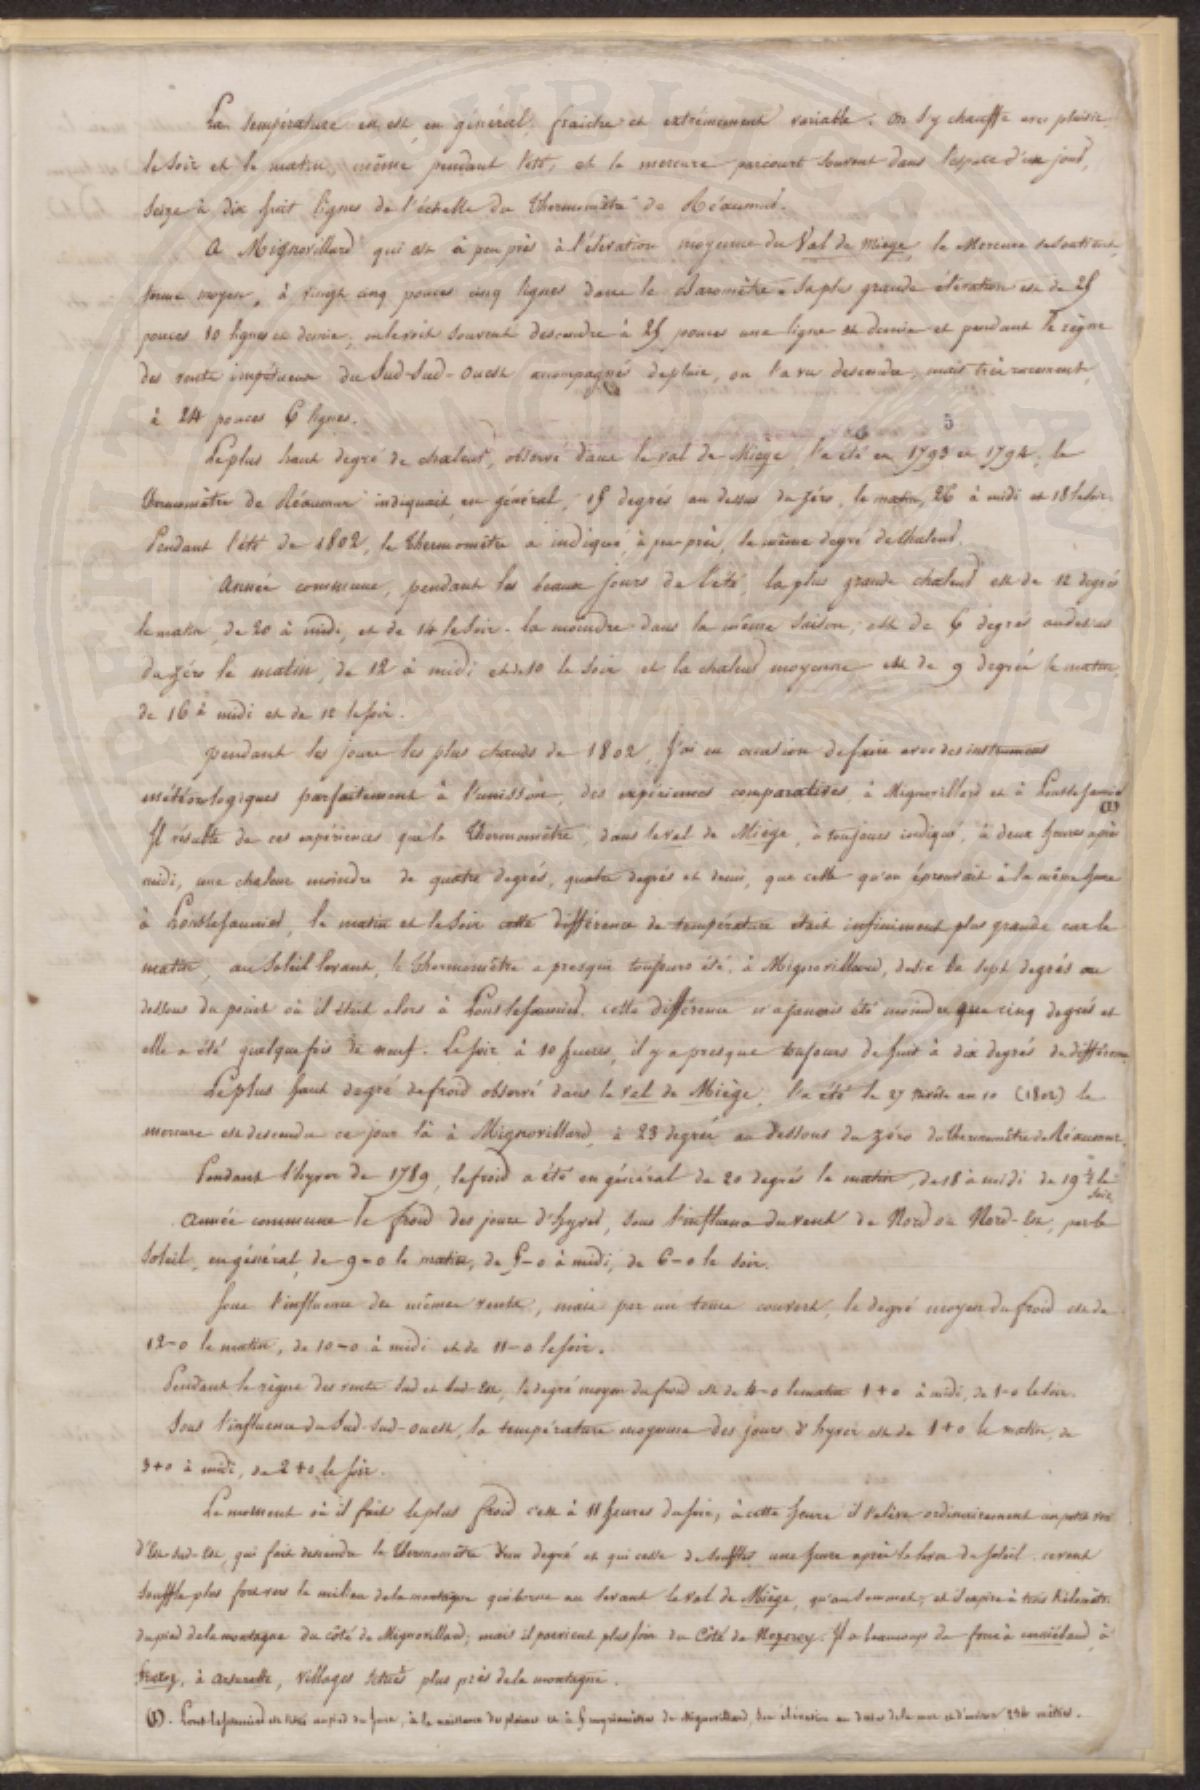 La température en est, en général, fraiche et extrémement variable. On s'y chauffe avec plaisir
le soir et le matin, même pendant l'été, et le mercure parcourt souvent dans l'espace d'un jour,
seize à dix huit lignes de l'échelle du thermomètre de Réaumur.
A Mignovillard qui est à peu près à l'élévation moyenne du Val de Miège, le Mercure se soutient,
terme moyen, à vingt cinq pouces cinq lignes dans le Baromètre. Sa plus grande élévation est de 25
pouces 10 lignes et demie, on le voit souvent descendre à 25 pouces une ligne et demie et pendant le règne
des vents impétueux du Sud-Sud-Ouest accompagnés de pluie, on l'a vu descendre, mais très rarement,
à 24 pouces 6 lignes.
Le plus haut degré de chaleur, observé dans le val de Miège, l'a été en 1793 et 1794, le
thermomètre de Réaumur indiquait, en général, 15 degrés au dessus du zéro, le matin, 26 à midi et 18 le soir.
Pendant l'été de 1802, le thermomètre a indiqué, à peu près, le même degré de chaleur.
Année commune, pendant les beaux jours de l'été, la plus grande chaleur est de 12 degrés
le matin, de 20 à midi, et de 14 le soir. la moindre dans la même saison, est de 6 degrés au dessus
du zéro le matin, de 12 à midi et de 10 le soir et la chaleur moyenne est de 9 degrés le matin,
de 16 à midi et de 12 le soir.
pendant les jours les plus chauds de 1802, j'ai eu occasion de faire avec des instrumens
météorologiques parfaitement à l'unisson, des expériences comparatives, à Mignovillard et à Lonslesaunier (1)
Il résulte de ces expériences que le thermomètre, dans le val de Miège, a toujours indiqué, à deux heures après
midi, une chaleur moindre de quatre degrés, quatre degrés et demi, que celle qu'on éprouvait à la même heure
à Lonslesaunier, le matin et le soir cette différence de température était infiniment plus grande car le
matin, au soleil levant, le thermomètre a presque toujours été, à Mignovillard, de six à sept degrés au
dessous du point où il était alors à Lonslesaunier. cette différence n'a jamais été moindre que cinq degrés et
elle a été quelquefois de neuf. Le soir à 10 heures, il y a presque toujours de huit à dix degrés de différence.
Le plus haut degré de froid observé dans le val de Miège, l'a été le 27 nivôse an 10 (1802) le
mercure est descendu ce jour là à Mignovillard, à 23 degrés au dessous du zéro du thermomètre de Réaumur.
Pendant l'hyver de 1789, le froid a été en général de 20 degrés le matin, de 18 à midi de 19 ½ le
soir.
Année commune le froid des jours d'hyver, sous l'influence du vent de Nord ou Nord-Est, par le
soleil, en général, de 9-0 le matin, de 5-0 à midi, de 6-0 le soir.
Sous l'influence des mêmes vents, mais par un tems couvert, le degré moyen du froid est de
12-0 le matin, de 10-0 à midi et de 11-0 le soir.
Pendant le règne des vents Sud et Sud-Est, le degré moyen du froid est de 4-0 le matin 1+0 à midi, de 1-0 le soir.
Sous l'influence du Sud-Sud-Ouest, la température moyenne des jours d'hyver est de 1+0 le matin, de
3+0 à midi, de 2+0 le soir.
Le moment où il fait le plus froid c'est à 11 heures du soir, à cette heure il s'élève ordinairement un petit vent
d'Est-Sud-Est, qui fait descendre le thermomètre d'un degré et qui cesse de souffler une heure après le lever du soleil. ce vent
souffle plus fort vers le milieu de la montagne qui borne au levant le val de Miège, qu'au sommet, et il expire à trois kilomètr.
du pied de la montagne du côté de Mignovillard, mais il parvient plus loin du côté de Nozeroy. Il a beaucoup de force à
Fraroz, à arsurette, villages situés plus près de la montagne.
(1). Lonslesaunier est situé au pied du Jura, à la naissance des plaines et à 5 myriamètres de Mignovillard, son élévation au dessus de la mer est d'environ 256 mètres.